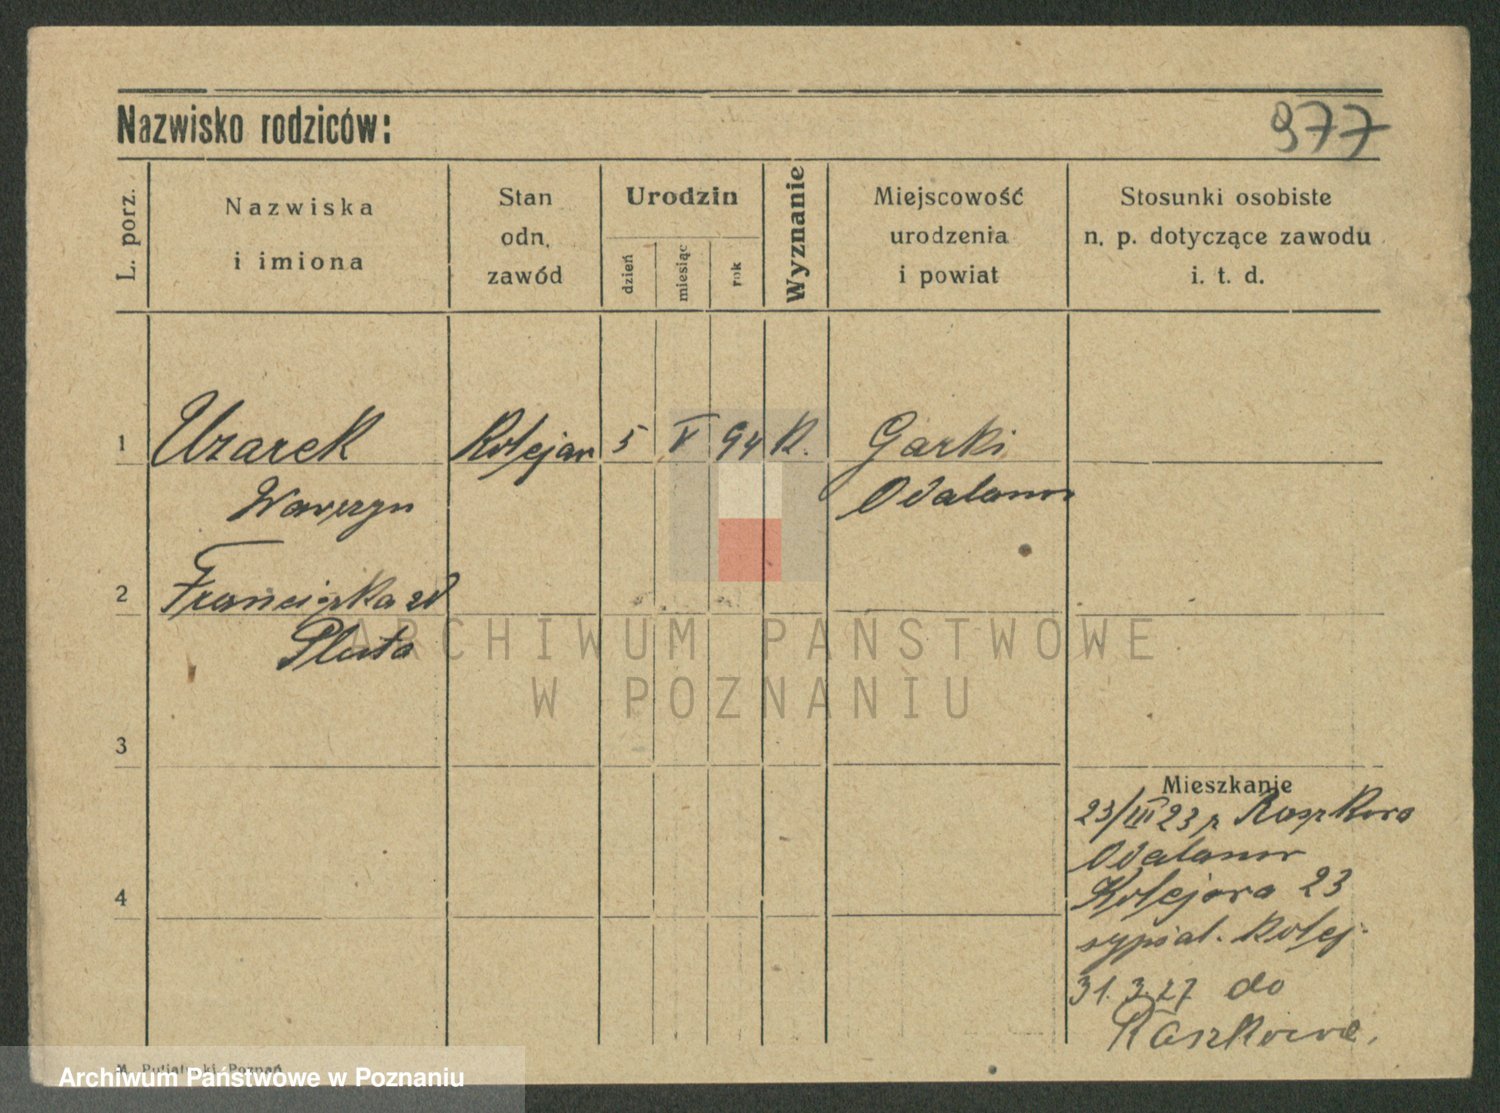 Nazwisko rodziców:
977
L. porz.
Nazwiska
i imiona
Stan
odn.
zawód
Urodzin
dzień
miesiąc
rok
Wyznanie
Miejscowość
urodzenia
i powiat
Stosunki osobiste
n. p. dotyczące zawodu
i. t. d.
1 Uzarek Kolejar 5 V 94 K. Garki
Wawrzyn Odalanow
2 Franciszka zd
Pluta
ARCHIWUM PAŃSTWOWE
W POZNANIU
3
Mieszkanie
23/III 23 z Raszkowa
Odalanow
4 Kolejowa 23
sypial. Kolej.
31.3.27 do
Raszkowa.
Putiatycki, Poznań
Archiwum Państwowe w Poznaniu